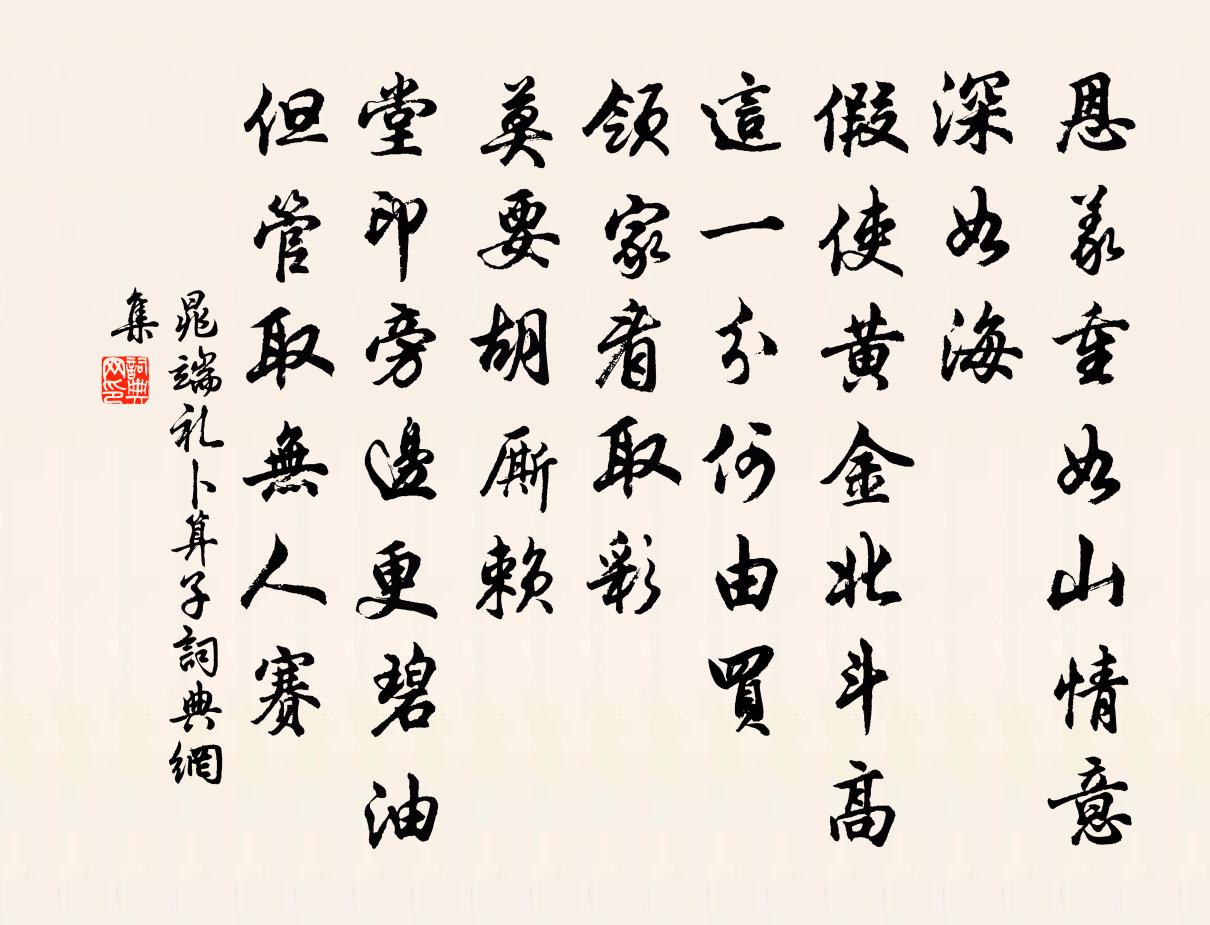 恩義重如山情意
深如海
假使黃金北斗高
這一分何由買
領家看取彩
莫要胡厮賴
堂印旁邊更碧油
但管取無人賽
晁端礼卜算子詞典網
集
詞典
网印